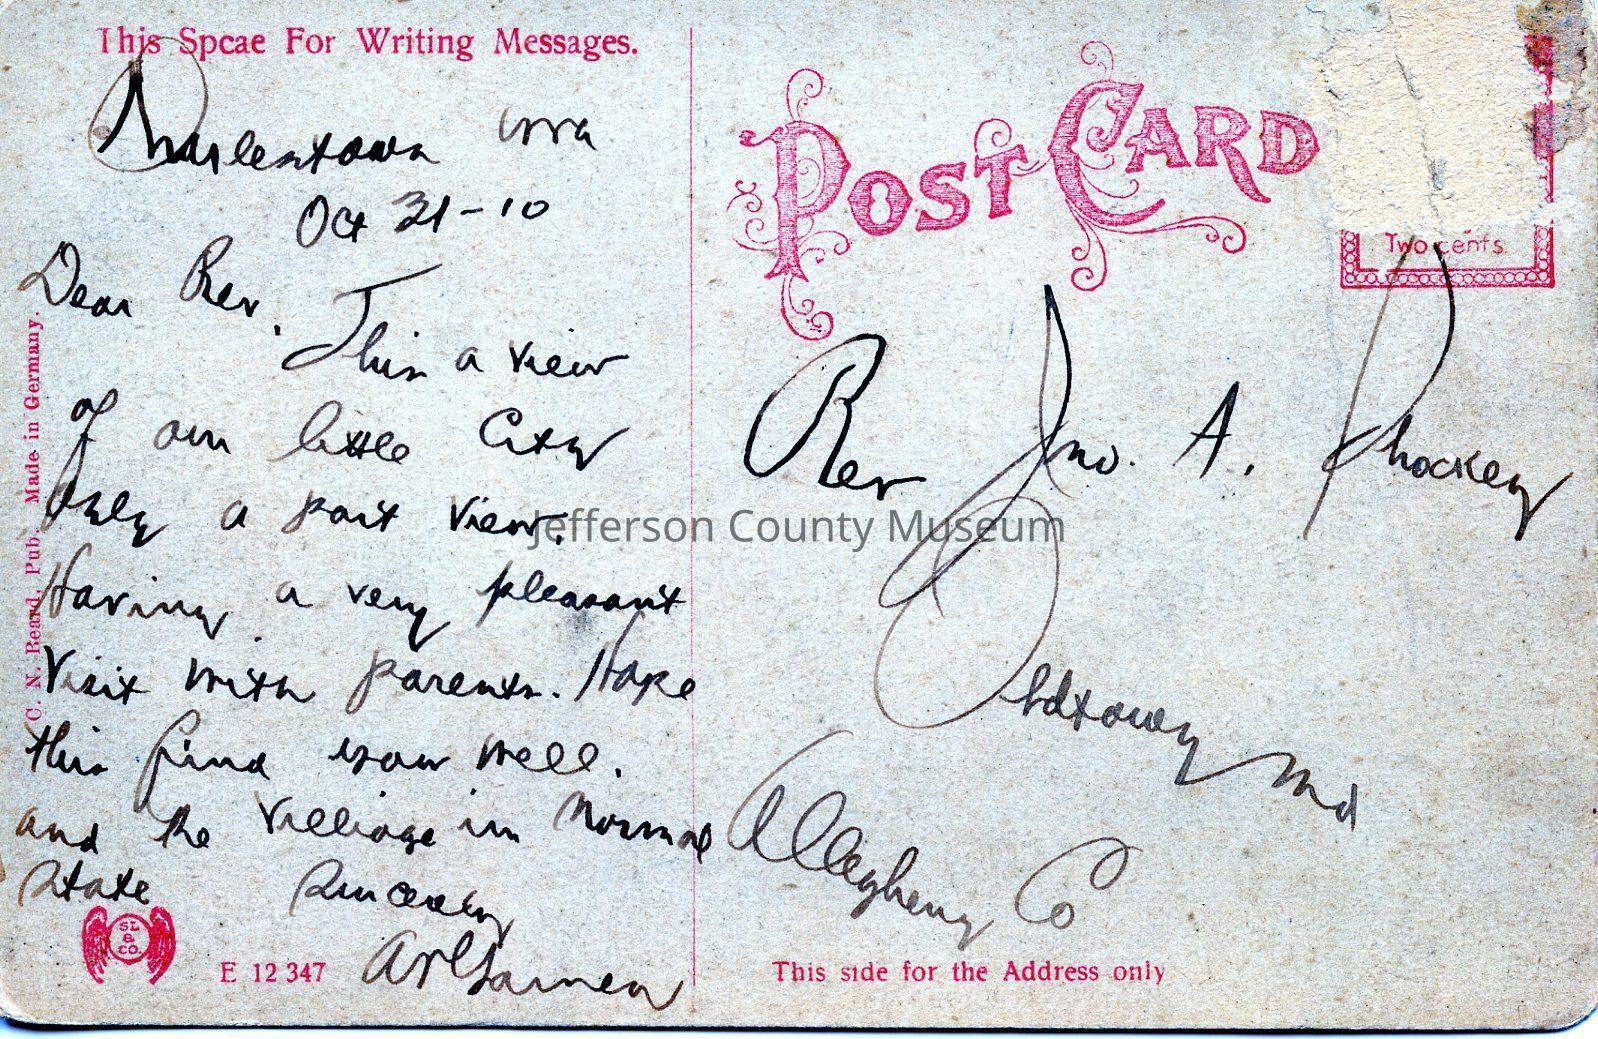 This Spcae For Writing Messages.
Charlestown WVa
Oct 31-10
Dear Rev.
This a view
of our little City
only a part view.
Having a very pleasant
visit with parents. Hope
this find you well.
and the village in normal
state Sincerely
C. N. Beard, Pub. Made in Germany.
SL & CO.
E 12 347
POST CARD
Two cents
Rev Jno. A.
Oldtown Md
Allegheny Co
This side for the Address only
Jefferson County Museum